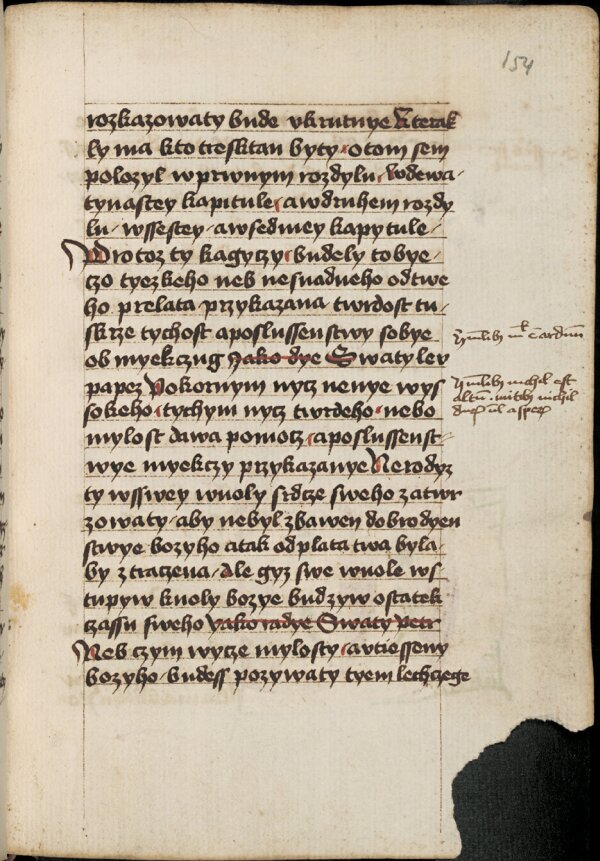 154
rozkazowaty bude vkrutnye Kterak
ly ma kto tresktan byty otom sem
polozyl wprwnym rozdylu, wdewa-
tynastey kapitule, awdruhem rozdy
lu wssestey awsedmey kapytule
Protoz ty kagyczy budely tobye
czo tyezkeho neb nesnadneho odtwe
ho prelata przykazana twrdost tu
skrze tychost aposlussenstwy sobye
ob myekczug Jako dye Swaty lev
papez Pokornym nycz nenye wys
sokeho tychym nycz twrdeho nebo
mylost dawa pomocz aposlussenst
wye myekczy przykazanye Nerodyz
ty wsswey wuoly srdcze sweho zatwr
zowaty aby nebyl zbawen dobrodyen
stwye bozyho atak odplata twa byla
by ztraczena Ale gyz swe wuole ws
tupyw kuoly bozye budzyw ostatek
czassu sweho yako radye Swaty Petr
Neb czym wycze mylosty autiesseny
bozyho budess pozywaty tyem lechczege
humilibus nichil est
altum mitibus nichil